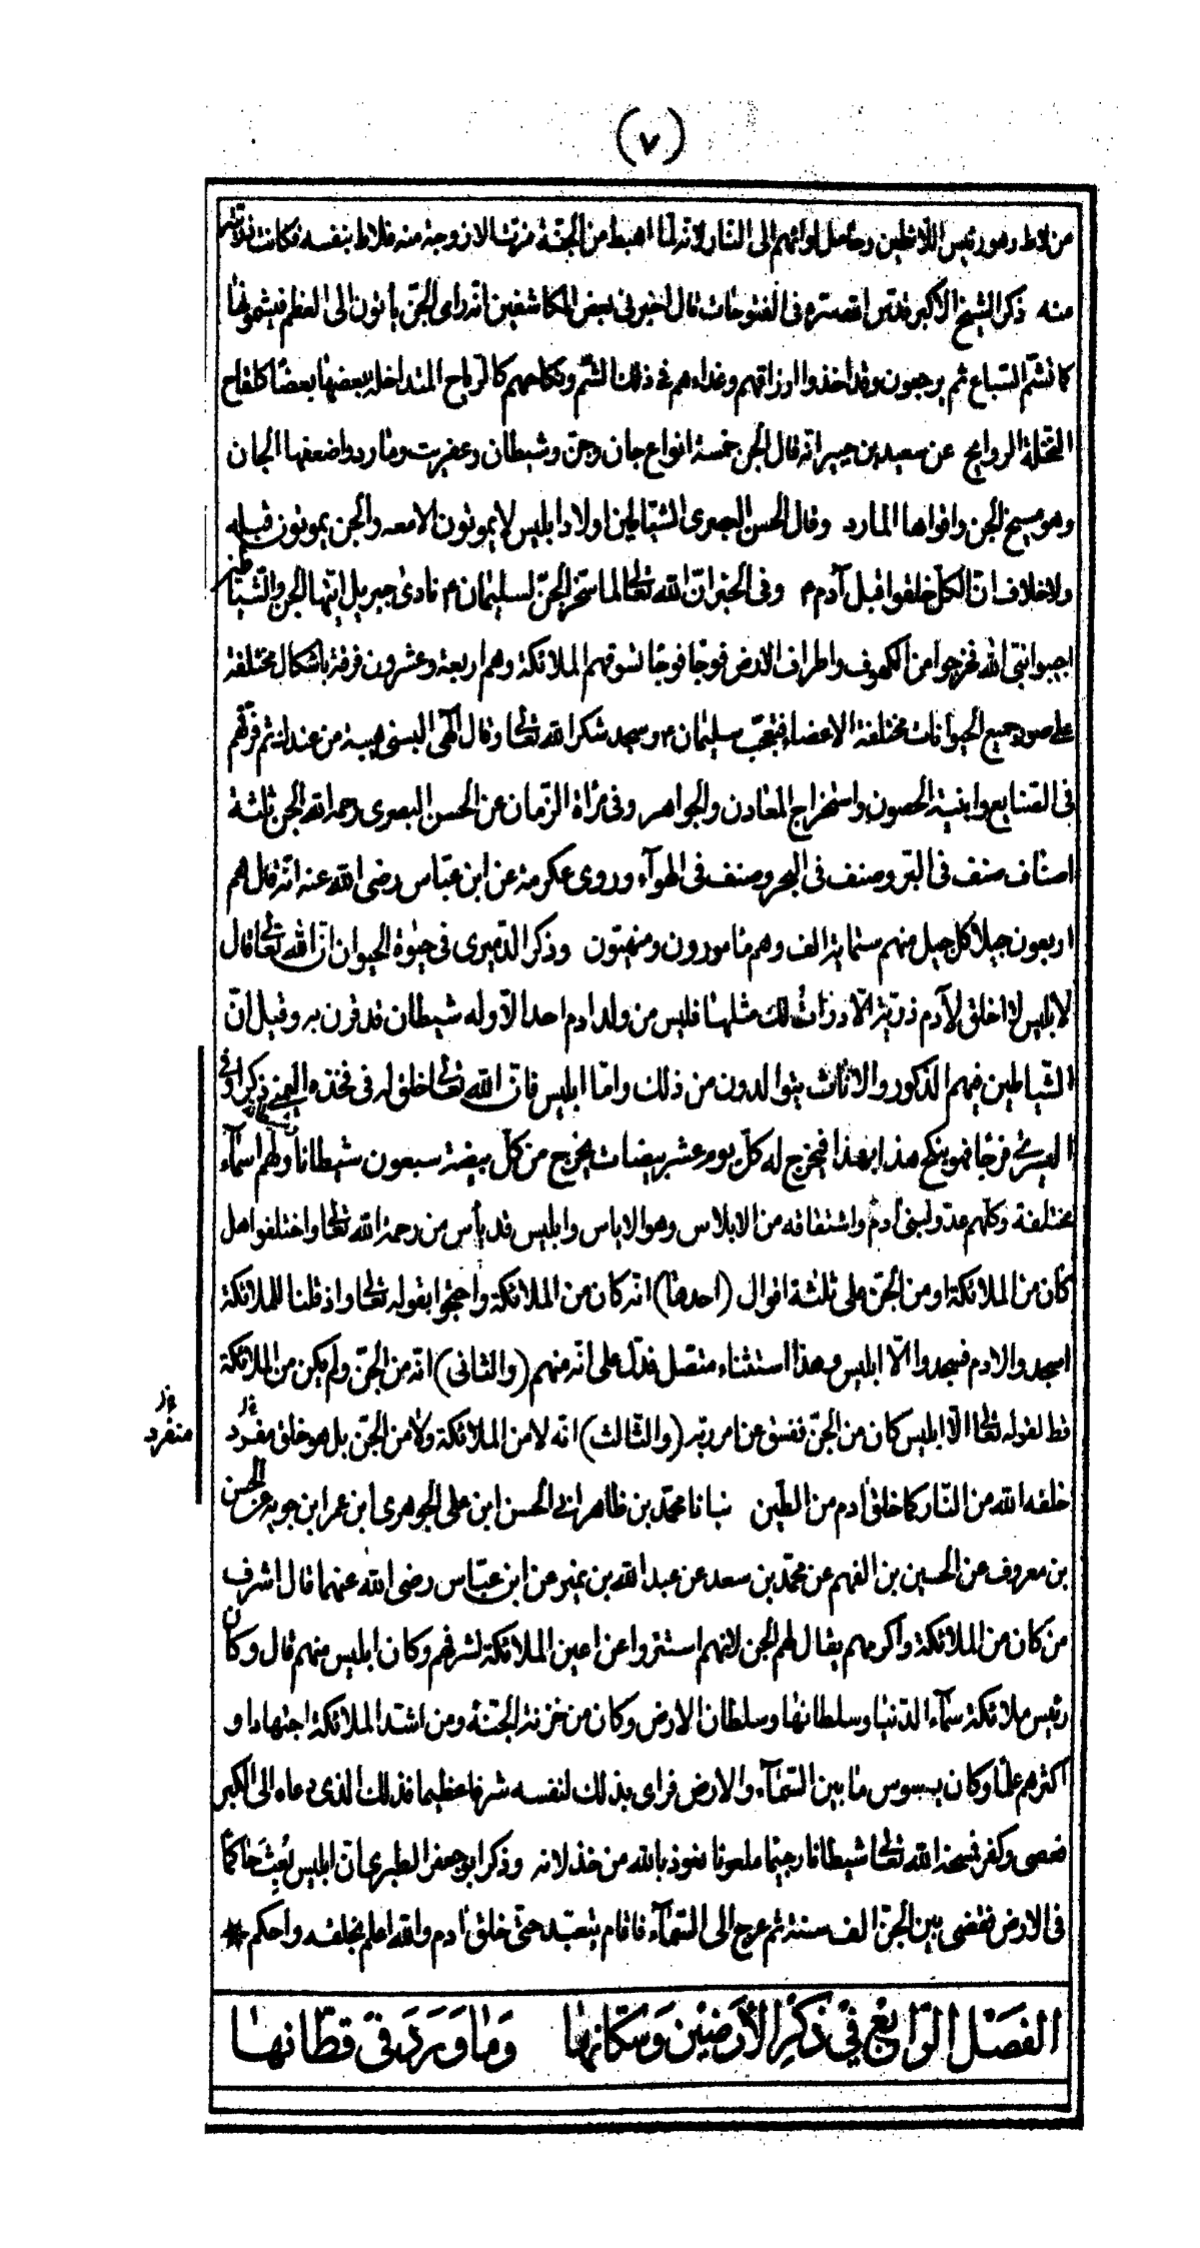 (٧)
من لاط وهو رئيس اللائطين وحامل لوائهم الى النار لانه لما اهبط من الجنة فرقت الا زوجة منه فلاط بنفسه فكانت ذريته
منه ذكر الشيخ الاكبر قدس الله سره فى الفتوحات قال اخبرنى بعض المكاشفين انه راى الجن يأتون الى العظم فيشمونها
كما تشم السباع ثم يرجعون وقد اخذوا ارزاقهم وغداءهم فى ذلك الشم ونكاحهم كالرياح المتداخلة بعضها بعضا كلقاح
النخلة الروايح عن سعيد بن جبير انه قال الجن خمسة انواع جان وجن وشيطان وعفريت ومارد واضعفها الجان
وهو مسيخ الجن واقواها المارد وقال الحسن البصرى الشياطين اولاد ابليس لا يموتون الا معه والجن يموتون قبله
ولا خلاف ان الكل خلقوا قبل آدم م وفى الخبر ان الله تعالى لما سخر الجن لسليمان م نادى جبريل ايتها الجن والشياطين
اجيبوا نبى الله فخرجوا من الكهوف واطراف الارض فوجا فوجا تسوقهم الملائكة وهم اربعة وعشرون فرقة باشكال مختلفة
على صور جميع الحيوانات مختلفة الاعضاء فتعجب سليمان م وسجد شكرا لله تعالى وقال آلهى البسنى هيبة من عندك ثم فرقهم
فى الصنايع وابنية الحصون واستخراج المعادن والجواهر وفى مرآة الزمان عن الحسن البصرى رحمه الله الجن ثلثة
اصناف صنف فى البر وصنف فى البحر وصنف فى الهوآء وروى عكرمة عن ابن عباس رضى الله عنه انه قال هم
اربعون جيلا كل جيل منهم ستماية الف وهم مامورون ومنهيون وذكر الدميرى فى حيوة الحيوان ان الله تعالى قال
لابليس لا اخلق لآدم ذرية الا ذرأت لك مثلها فليس من ولد ادم احد الا وله شيطان قد قرن به وقيل ان
الشياطين فيهم الذكور والاناث يتوالدون من ذلك واما ابليس فان الله تعالى خلق له فى فخذه اليمنى ذكرا وفى
اليسرى فرجا فهو ينكح هذا بهذا فيخرج له كل يوم عشر بيضات يخرج من كل بيضة سبعون شيطانا ولهم اسمآء
مختلفة وكلهم عدو لبنى ادم واشتقاقه من الابلاس وهو الاياس وابليس قد يأس من رحمة الله تعالى واختلفوا هل
كان من الملائكة او من الجن على ثلثة اقوال (احدها) انه كان من الملائكة واحتجوا بقوله تعالى واذ قلنا للملائكة
اسجدوا لادم فسجدوا الا ابليس وهذا استثناء متصل فدل على انه منهم (والثانى) انه من الجن ولم يكن من الملائكة
قط لقوله تعالى الا ابليس كان من الجن ففسق عن امر ربه (والثالث) انه لا من الملائكة ولا من الجن بل هو خلق مفرد
منفرد
خلقه الله من النار كما خلق ادم من الطين نبانا محمد بن طاهر انبى الحسن ابن على الجوهرى ابن عمر ابن جويه عن الحسن
بن معروف عن الحسين بن الفهم عن محمد بن سعد عن عبد الله بن نمير عن ابن عباس رضى الله عنهما قال اشرف
من كان من الملائكة واكرمهم يقال لهم الجن لانهم استتروا عن اعين الملائكة لشرفهم وكان ابليس منهم قال وكان
رئيس ملائكة سمآء الدنيا وسلطانها وسلطان الارض وكان من خزنة الجنة ومن اشد الملائكة اجتهادا و
اكثرهم علما وكان يسوس ما بين السمآء والارض فراى بذلك لنفسه شرفا عظيما فذلك الذى دعاه الى الكبر
فعصى وكفر فمسخه الله تعالى شيطانا رجيما ملعونا نعوذ بالله من خذلانه وذكر ابو جعفر الطبرى ان ابليس بعث حاكما
فى الارض فقضى بين الجن الف سنة ثم عرج الى السمآء فاقام يتعبد حتى خلق ادم والله اعلم بخلقه واحكم *
الفصل الرابع فى ذكر الارضين وسكانها وما ورد فى قطانها